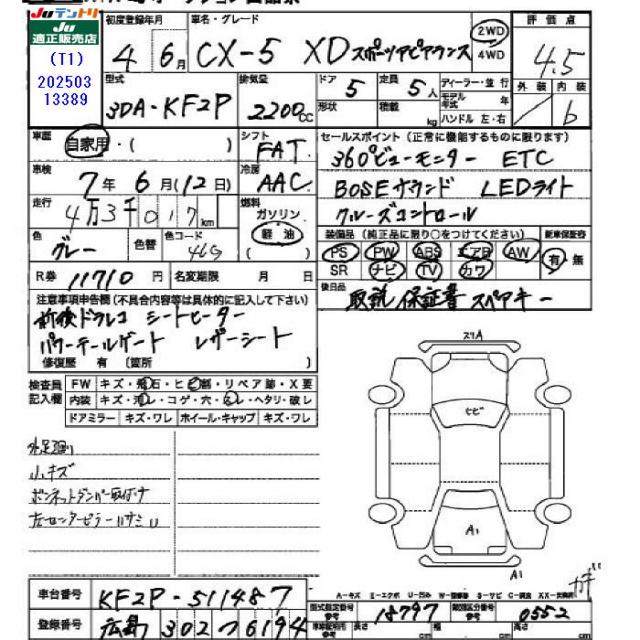 Juテントリ
Ju
適正販売店
(T1)
202503
13389
初度登録年月
4 6月
車名・グレード
CX-5 XD スポーツアピアランス
2WD
4WD
評価点
4.5
型式
3DA-KF2P
排気量
2200cc
ドア 5
定員 5人
形状
積載 kg
ディーラー・並行
モデル年式 年
ハンドル 左・右
外装 内装
b
車歴
自家用・( )
シフト
FAT
セールスポイント (正常に機能するものに限ります)
360°ビューモニター ETC
車検
7年6月(12日)
冷房
AAC
BOSEサウンド LEDライト
走行
4万3千017km
燃料
ガソリン
軽油
( )
クルーズコントロール
色
グレー
色替
色コード
46G
装備品 (純正品に限り○をつけてください)
新車保証書
PS PW ABS エアB AW
有・無
SR ナビ TV カワ
R券 11710円
名変期限 月 日
後日品
取説 保証書 スペアキー
注意事項申告欄(不具合内容等は具体的に記入して下さい)
前後ドラレコ シートヒーター
パワーテールゲート レザーシート
修復歴 有 (箇所 )
検査員
記入欄
FW キズ・飛石・ヒビ割・リペア跡・X要
内装 キズ・汚レ・コゲ・穴・スレ・ヘタリ・破レ
ドアミラー キズ・ワレ ホイール・キャップ キズ・ワレ
スリA
ヒビ
小キズ
ボンネットダンパー取付ナ
左センターピラーハサミ
A1
A1
A-キズ E-エクボ U-凹み W-補修跡 S-サビ C-腐食 XX-交換済
車台番号
KF2P-511487
登録番号
広島 302 つ 6194
型式指定番号
参考
18797
類別区分番号
参考
0552
長さ cm 幅 cm 高さ cm